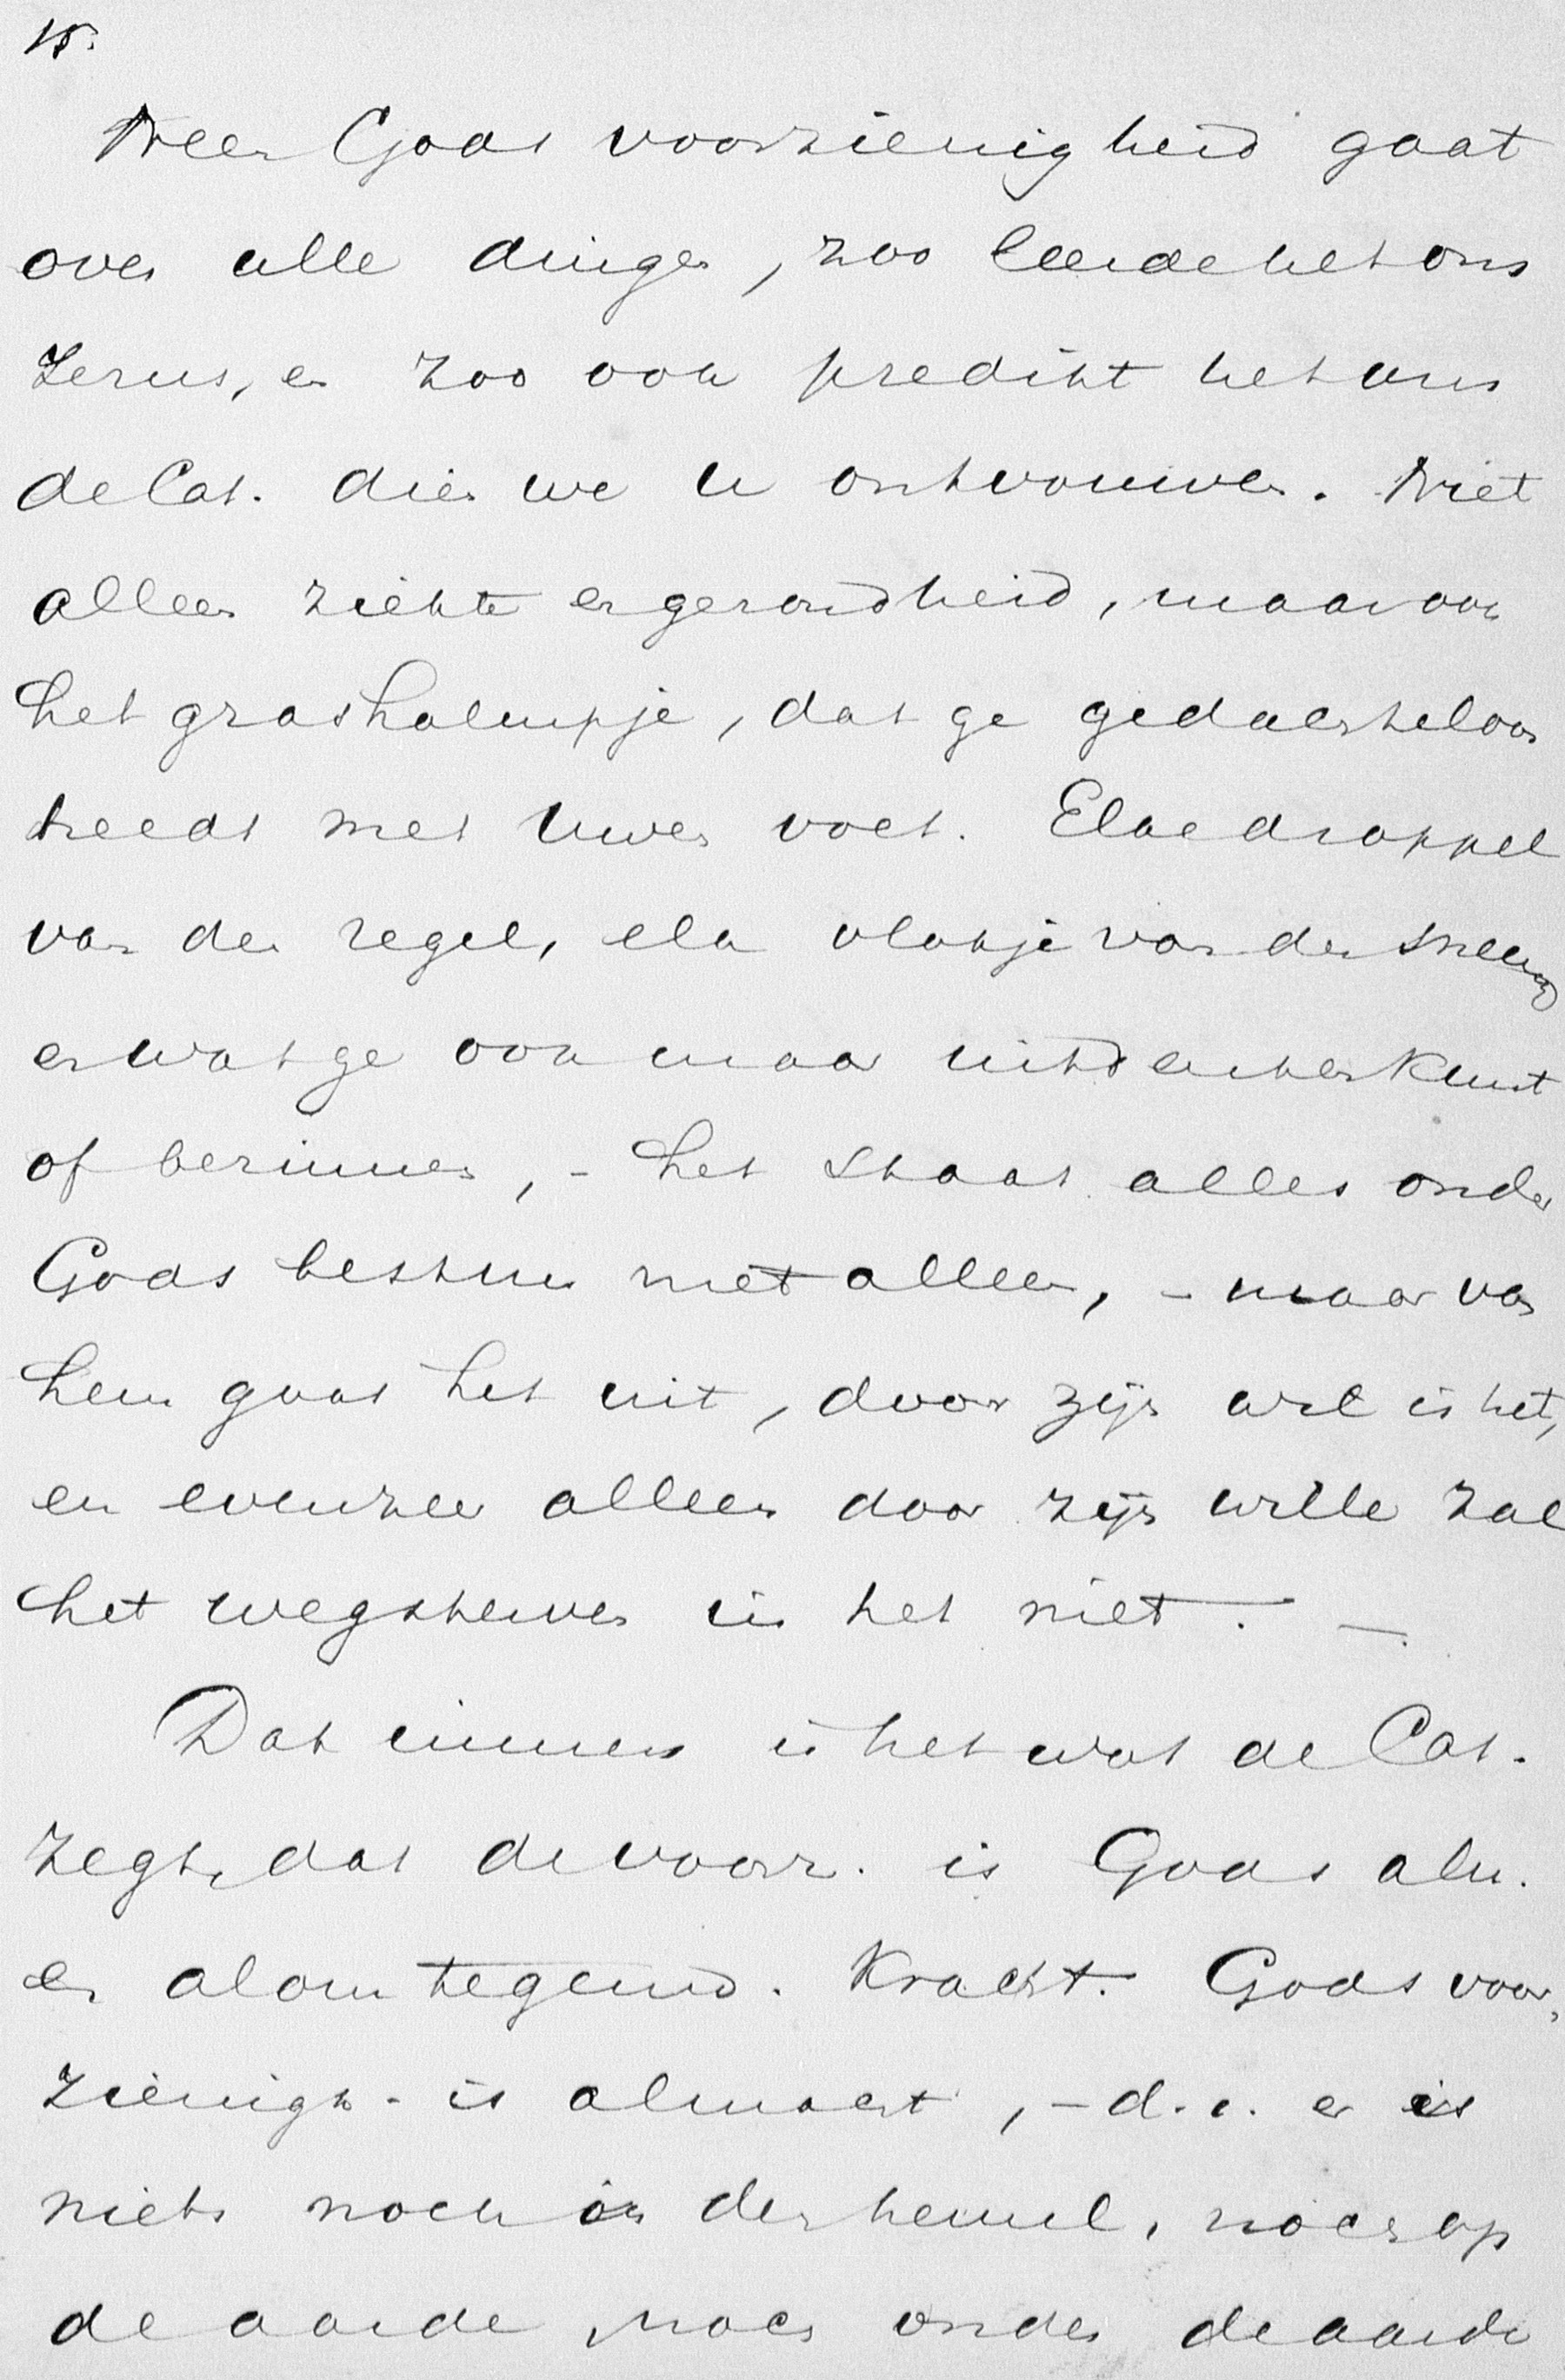 15.
Neen Gods voorzienigheid gaat
over alle dingen, zoo leerde het ons
Jezus, en zoo ook predikt het ons
de Cat. dien we u ontvouwen. Niet
alleen ziekte en gezondheid, maar ook
het grashalmpje, dat ge gedachteloos
treedt met uwen voet. Elke droppel
van den regen, elk vlokje van de sneeuw
en wat ge ook maar uitdenken kunt
of bezinnen, - het staat alles onder
Gods bestuur niet alleen, - maar van
hem gaat het uit, door zijn wil is het,
en evenzeer alleen door zijn wille zal
het wegsterven in het niet. -.
Dat immers is het wat de Cat.
zegt, dat de voorz. is Gods alm.
en alom tegenw. Kracht. Gods voor,
zienigh. is almacht, - d.i. er is
niets noch in den hemel, noch op
de aarde, noch onder de aarde